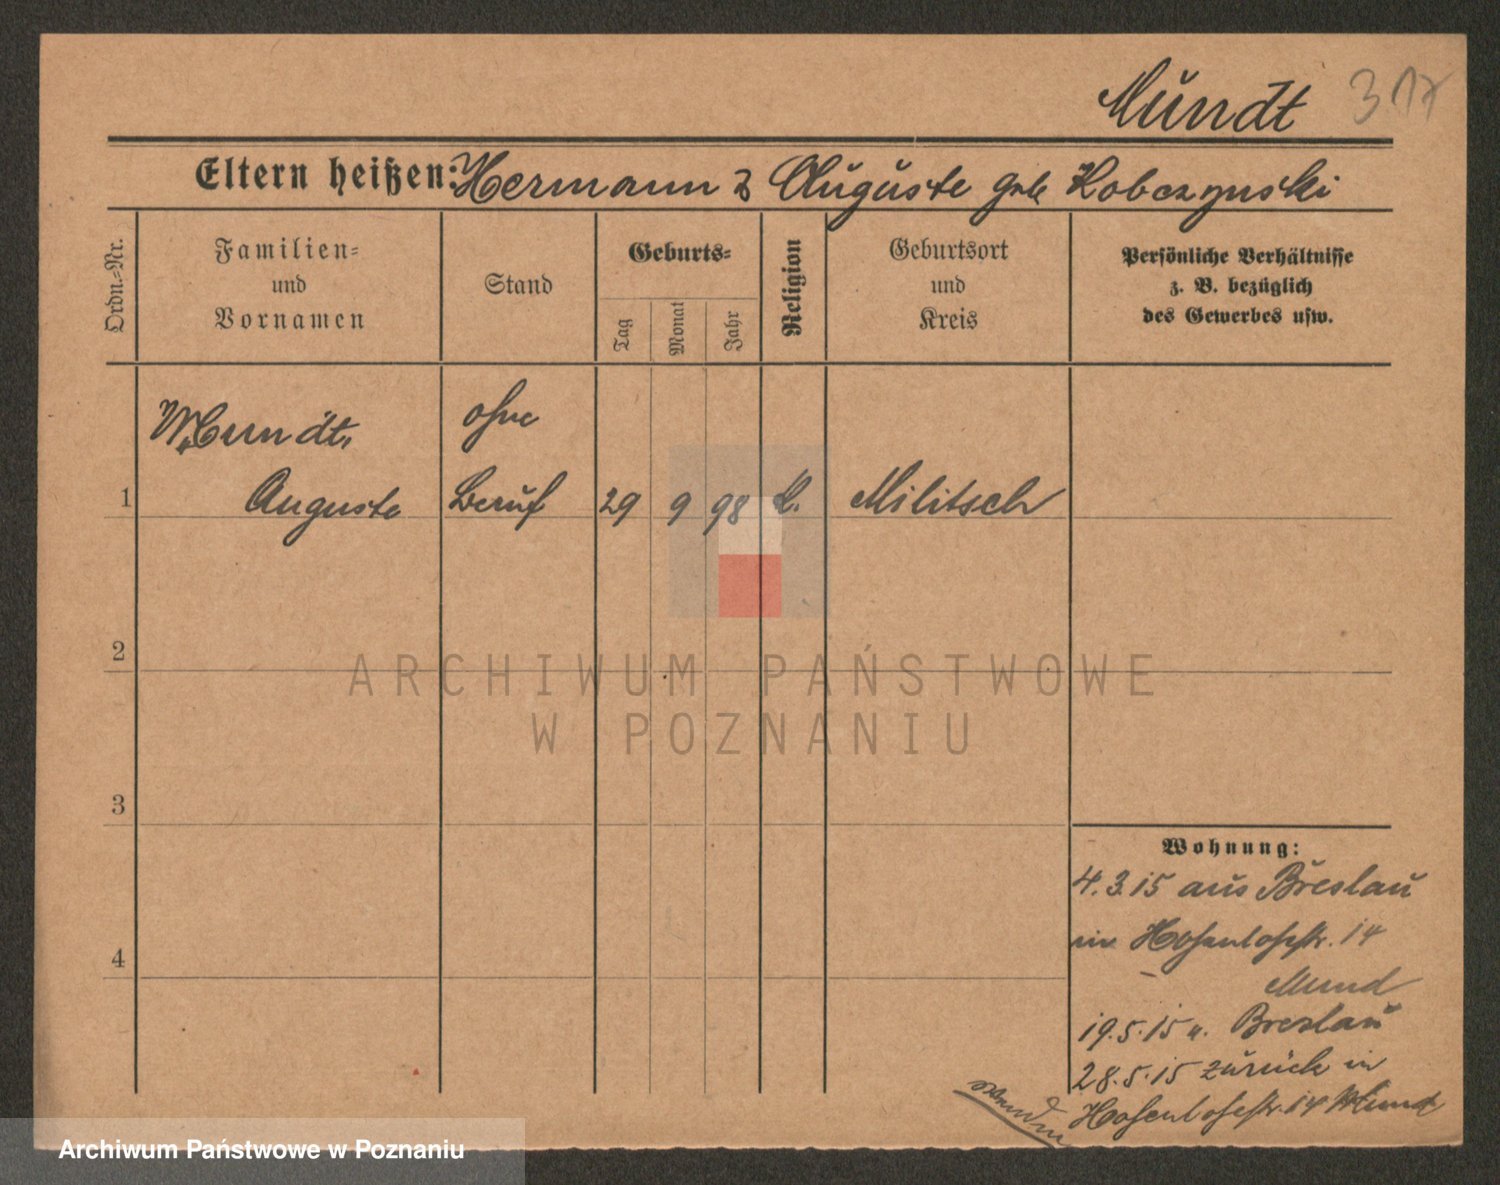 Mundt 3.17
Eltern heißen: Hermann & Auguste geb. Kobczynski
Ordn.=Nr.
Familien=
und
Vornamen
Stand
Geburts=
Tag
Monat
Jahr
Religion
Geburtsort
und
Kreis
Persönliche Verhältnisse
z. B. bezüglich
des Gewerbes usw.
Mundt,
ohne
1 Auguste Beruf 29 9 98 k. Militsch
2
ARCHIWUM PAŃSTWOWE
W POZNANIU
3
Wohnung:
4.3.15 aus Breslau
in Hohenlohestr. 14
4
Mund
19.5.15 n. Breslau
28.5.15 zurück in
Hohenlohestr. 14 Mund
wenden
Archiwum Państwowe w Poznaniu